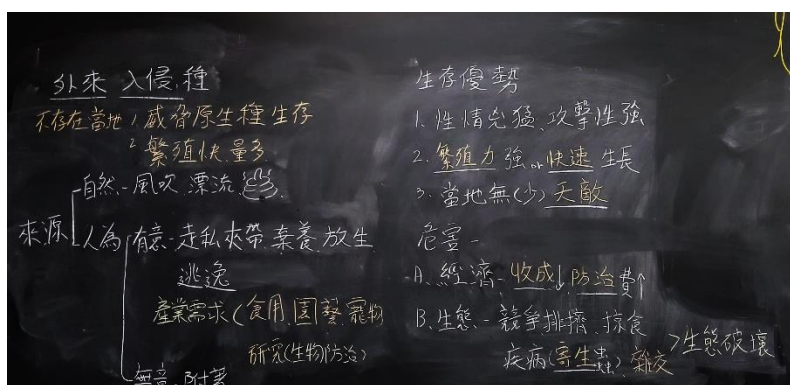 外來 入侵種
不存在當地 1 威脅原生種生存
2 繁殖快.量多
來源
自然-風吹 漂流
人為
有意-走私夾帶 棄養 放生
逃逸
產業需求(食用.園藝.寵物
研究(生物防治)
無意.附著
生存優勢
1. 性情兇猛、攻擊性強
2. 繁殖力強or快速生長
3. 當地無(少)天敵
危害-
A. 經濟-收成↓防治費↑
B. 生態-競爭排擠.掠食
疾病(寄生蟲) 雜交 >生態破壞